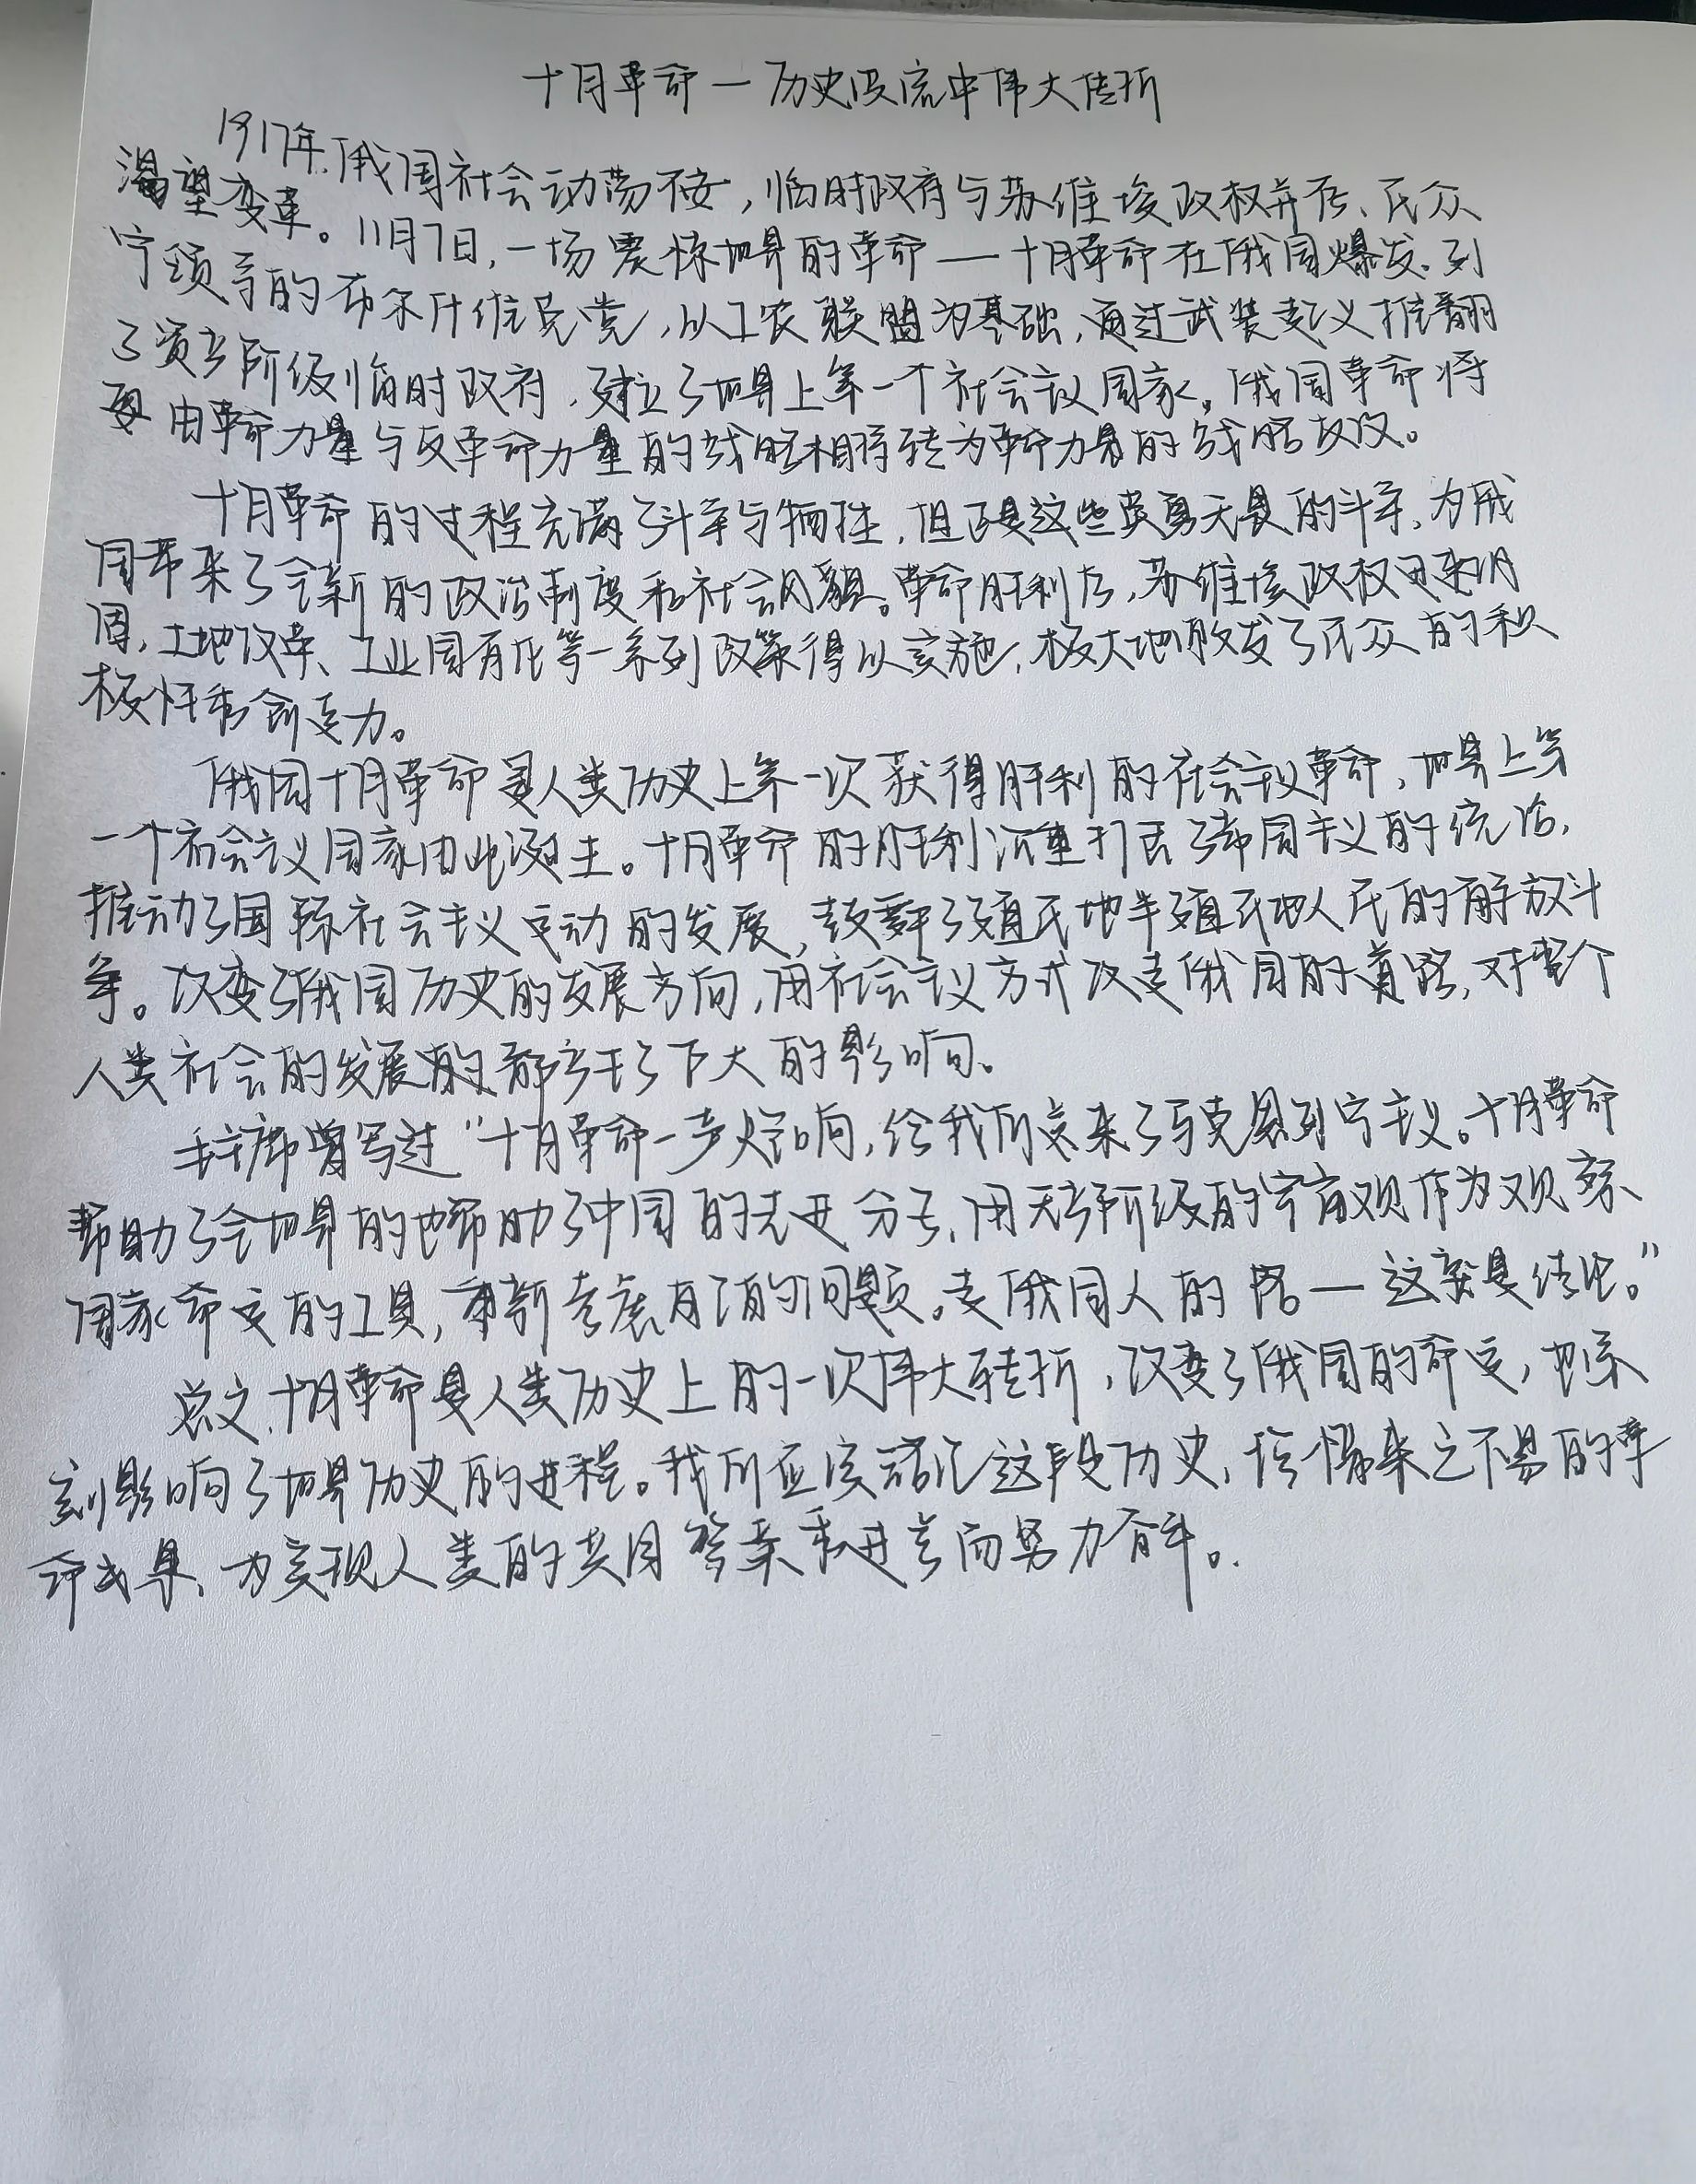 十月革命一历史洪流中伟大转折
1917年,俄国社会动荡不安,临时政府与苏维埃政权并存、民众
渴望变革。11月7日,一场震惊世界的革命—十月革命在俄国爆发、列
宁领导的布尔什维克党,以工农联盟为基础,通过武装起义推翻
了资产阶级临时政府,建立了世界上第一个社会主义国家。俄国革命将
要由革命力量与反革命力量的战略相持转为革命力量的战略反攻。
十月革命的过程充满了斗争与牺牲,但正是这些英勇无畏的斗争、为俄
国带来了全新的政治制度和社会风貌。革命胜利后,苏维埃政权日渐巩
固,土地改革、工业国有化等一系列政策得以实施,极大地激发了民众的积
极性和创造力。
俄国十月革命是人类历史上第一次获得胜利的社会主义革命,世界上第
一个社会主义国家由此诞生。十月革命的胜利沉重打击了帝国主义的统治,
推动了国际社会主义运动的发展,鼓舞了殖民地半殖民地人民的解放斗
争。改变了俄国历史的发展方向,用社会主义方式改造俄国的道路,对整个
人类社会的发展的都产生了巨大的影响。
毛主席曾写过“十月革命一声炮响,给我们送来了马克思列宁主义。十月革命
帮助了全世界的也帮助了中国的先进分子,用无产阶级的宇宙观作为观察
国家命运的工具,重新考虑自己的问题。走俄国人的路—这就是结论。”
总之,十月革命是人类历史上的一次伟大转折,改变了俄国的命运,也深
刻影响了世界历史的进程。我们应该铭记这段历史,珍惜来之不易的革
命成果、为实现人类的共同繁荣和进步而努力奋斗。